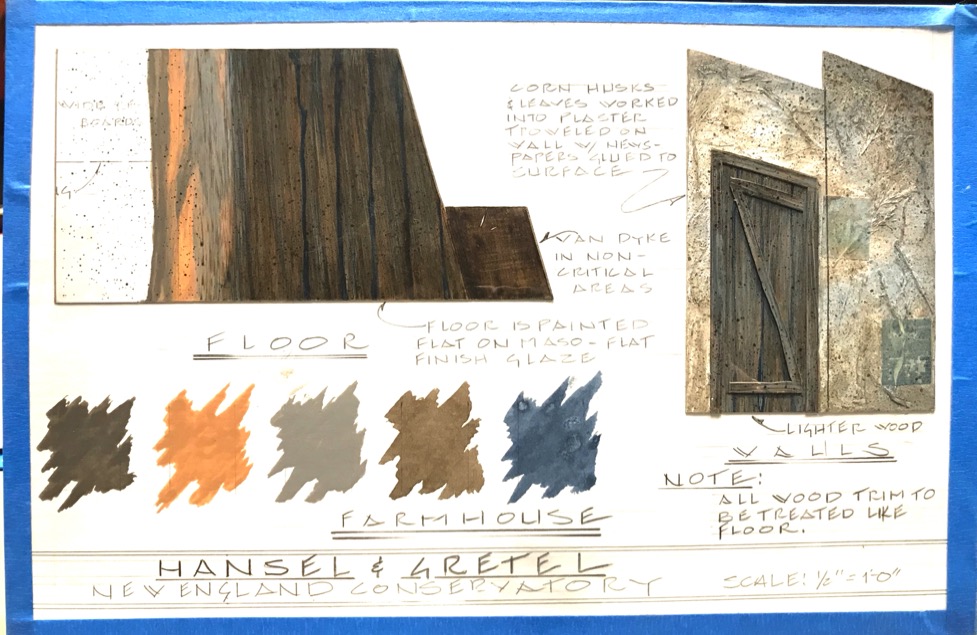 BOARDS
CORN HUSKS
& LEAVES WORKED
INTO PLASTER
TROWELED ON
WALL W/ NEWS-
PAPERS GLUED TO
SURFACE
VAN DYKE
IN NON-
CRITICAL
AREAS
FLOOR
FLOOR IS PAINTED
FLAT ON MASO-FLAT
FINISH GLAZE
LIGHTER WOOD
WALLS
NOTE:
ALL WOOD TRIM TO
BE TREATED LIKE
FLOOR.
FARMHOUSE
HANSEL & GRETEL
NEW ENGLAND CONSERVATORY
SCALE: 1/2" = 1'-0"